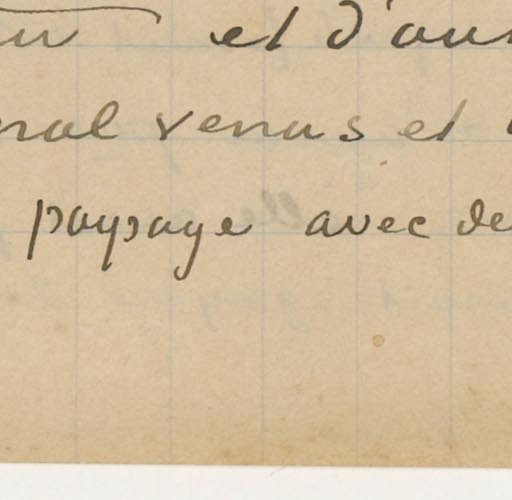 et d'au
nal venus et
paysage avec de